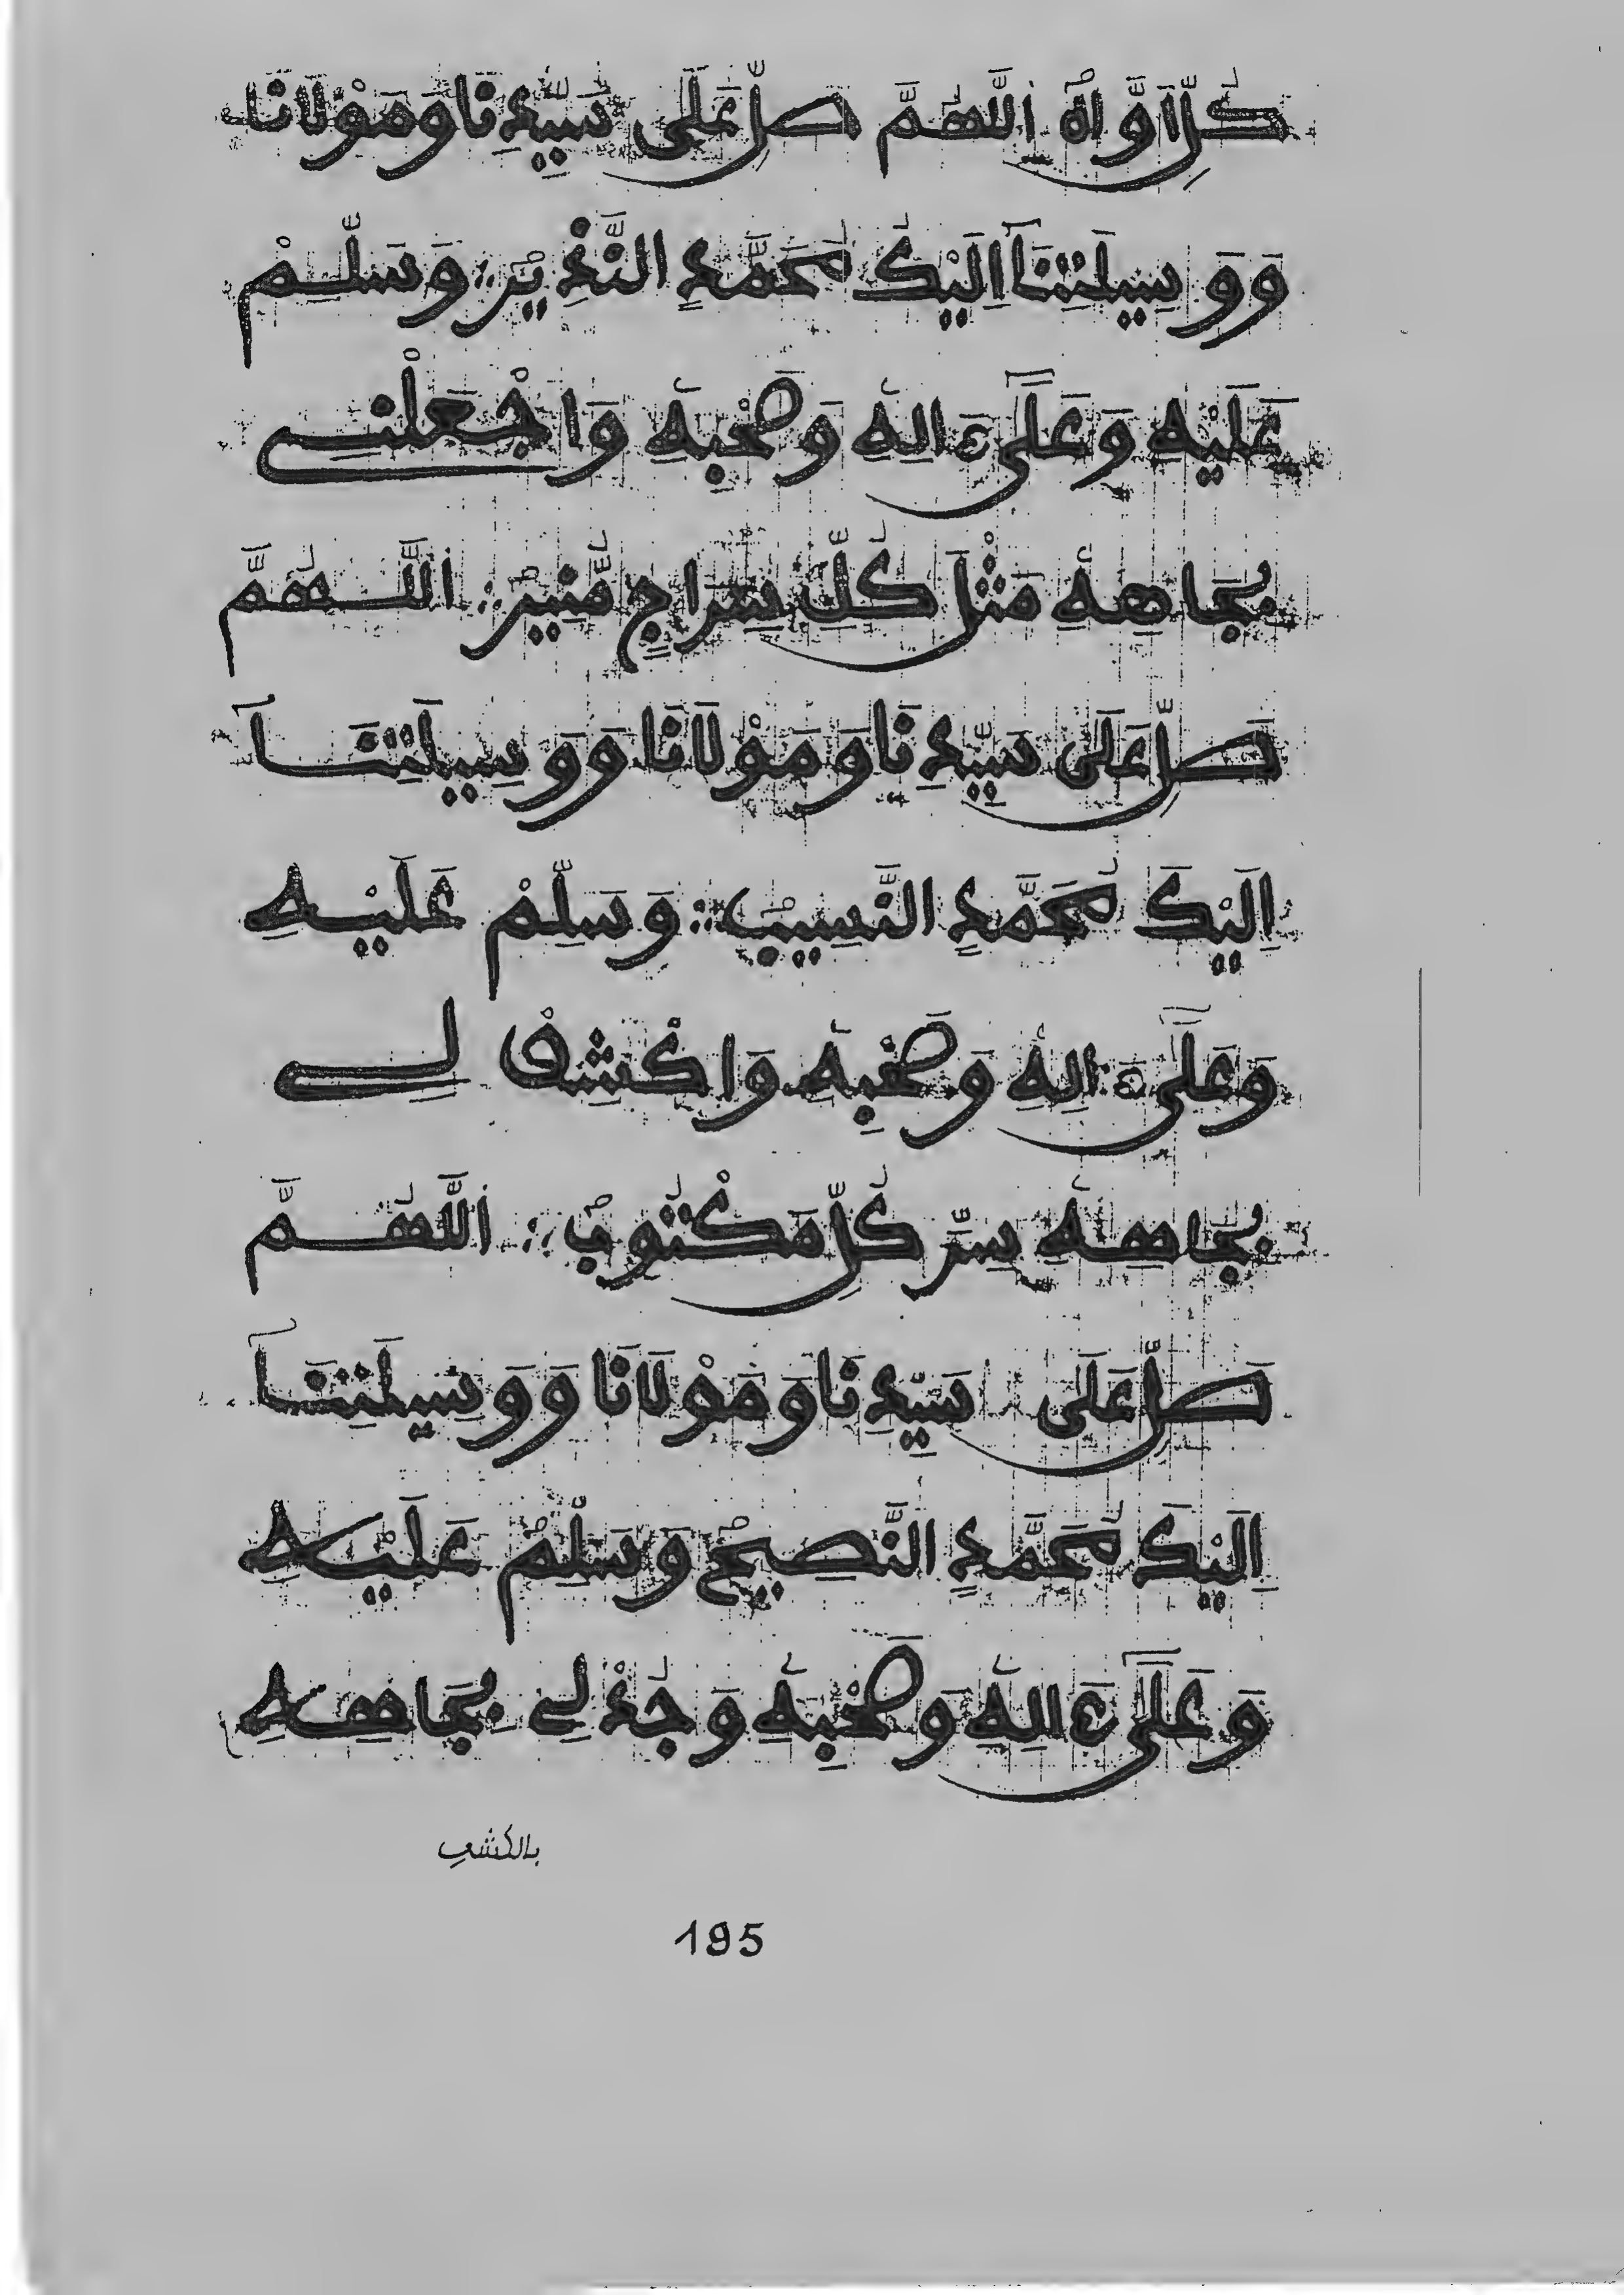 كُلِّ اَوَّاهٌ اَللَّهُمَّ صَلِّ عَلَى سَيِّدِنَا وَمَوْلَانَا
وَوَسِيلَتِنَا إِلَيْكَ مُحَمَّدٍ النَّذِيرُ؞ وَسَلِّمْ
عَلَيْهِ وَعَلَىٰ ءَالِهِ وَصَحْبِهِ وَاجْعَلْنِي
بِجَاهِهِ مِثْلَ كُلِّ سِرَاجٍ مُّنِيرٌ؞ اَللَّهُمَّ
صَلِّ عَلَى سَيِّدِنَا وَمَوْلَانَا وَوَسِيلَتِنَا
إِلَيْكَ مُحَمَّدٍ النَّسِيبُ؞ وَسَلِّمْ عَلَيْهِ
وَعَلَىٰ ءَالِهِ وَصَحْبِهِ وَاكْشِفْ لِي
بِجَاهِهِ سِرَّ كُلِّ مَكْتُوبٌ؞ اَللَّهُمَّ
صَلِّ عَلَى سَيِّدِنَا وَمَوْلَانَا وَوَسِيلَتِنَا
إِلَيْكَ مُحَمَّدٍ النَّصِيحُ وَسَلِّمْ عَلَيْهِ
وَعَلَىٰ ءَالِهِ وَصَحْبِهِ وَجُدْ لِي بِجَاهِهِ
بالكشف
195